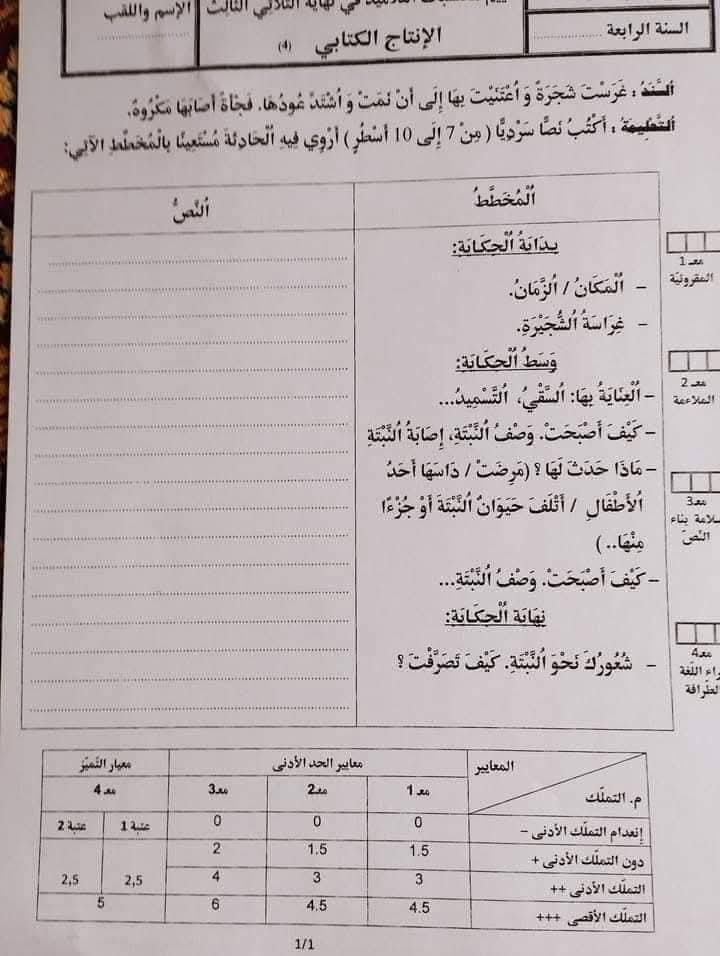 الإسم واللقب
السنة الرابعة
الإنتاج الكتابي (4)
اَلسَّنَدُ : غَرَسْتَ شَجَرَةً وَ اُعْتَنَيْتَ بِهَا إِلَى أَنْ نَمَتْ وَ اُشْتَدَّ عُودُهَا. فَجْأَةً أَصَابَهَا مَكْرُوهٌ.
التَّعْلِيمَةُ : اُكْتُبْ نَصًّا سَرْدِيًّا ( مِنْ 7 إِلَى 10 أَسْطُرٍ ) أَرْوِي فِيهِ اُلْحَادِثَةَ مُسْتَعِينًا بِالْمُخَطَّطِ الآتِي:
اُلْمُخَطَّطُ
اُلنَّصُّ
بِدَايَةُ اُلْحِكَايَةِ:
– اُلْمَكَانُ / اُلزَّمَانُ.
– غِرَاسَةُ اُلشُّجَيْرَةِ.
وَسَطُ اُلْحِكَايَةِ:
– اُلْعِنَايَةُ بِهَا: اُلسَّقْيُ، اُلتَّسْمِيدُ...
– كَيْفَ أَصْبَحَتْ. وَصْفُ اُلنَّبْتَةِ، إِصَابَةُ اُلنَّبْتَةِ
– مَاذَا حَدَثَ لَهَا ؟ (مَرِضَتْ / دَاسَهَا أَحَدُ
اُلأَطْفَالِ / أَتْلَفَ حَيَوَانٌ اُلنَّبْتَةَ أَوْ جُزْءًا
مِنْهَا.. )
– كَيْفَ أَصْبَحَتْ. وَصْفُ اُلنَّبْتَةِ...
نِهَايَةُ اُلْحِكَايَةِ:
– شُعُورُكَ نَحْوَ اُلنَّبْتَةِ. كَيْفَ تَصَرَّفْتَ ؟
معـ 1
المقروئيّة
معـ 2
الملاءمة
معـ3
سلامة بناء
النّصّ
معـ4
اللّغة
الطّرافة
المعايير
م. التملّك
معايير الحد الأدنى
معيار التّميّز
معـ 1 معـ2 معـ3 معـ 4
إنعدام التملّك الأدنى – 0 0 0 عتبة 1 عتبة 2
دون التملّك الأدنى + 1.5 1.5 2
التملّك الأدنى ++ 3 3 4 2,5 2,5
التملّك الأقصى +++ 4.5 4.5 6 5
1/1